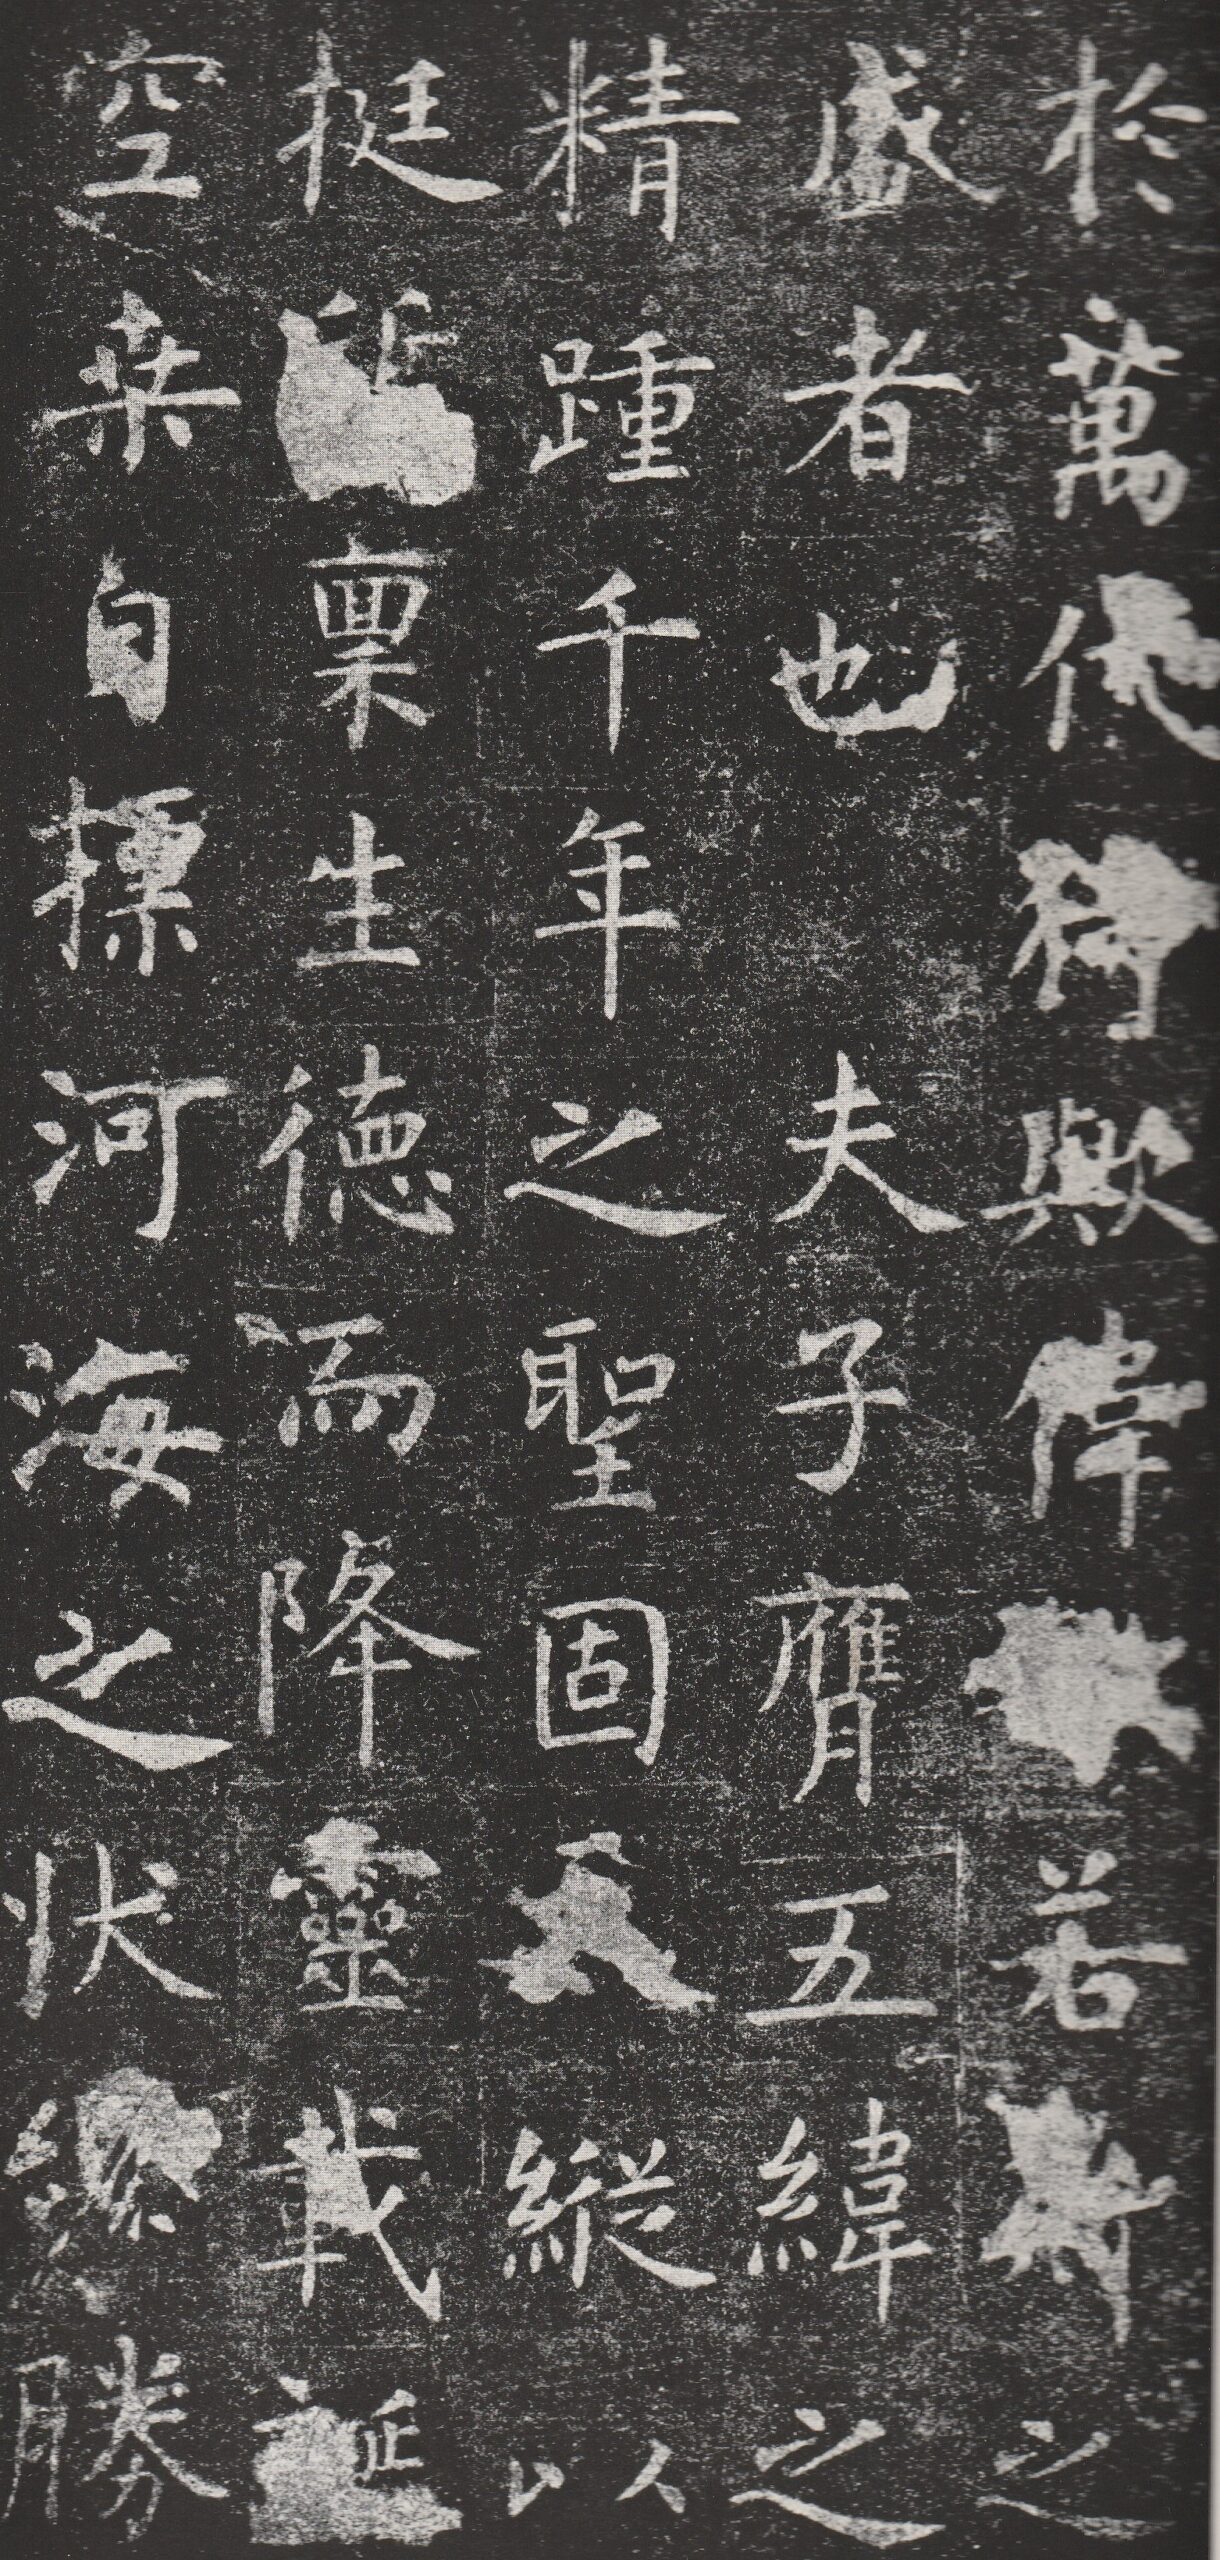 於萬代猗歟偉若斯之
盛者也夫子膺五緯之
精踵千年之聖固天縱以
挺質稟生德而降靈載誕
空桒自標河海之狀纔勝